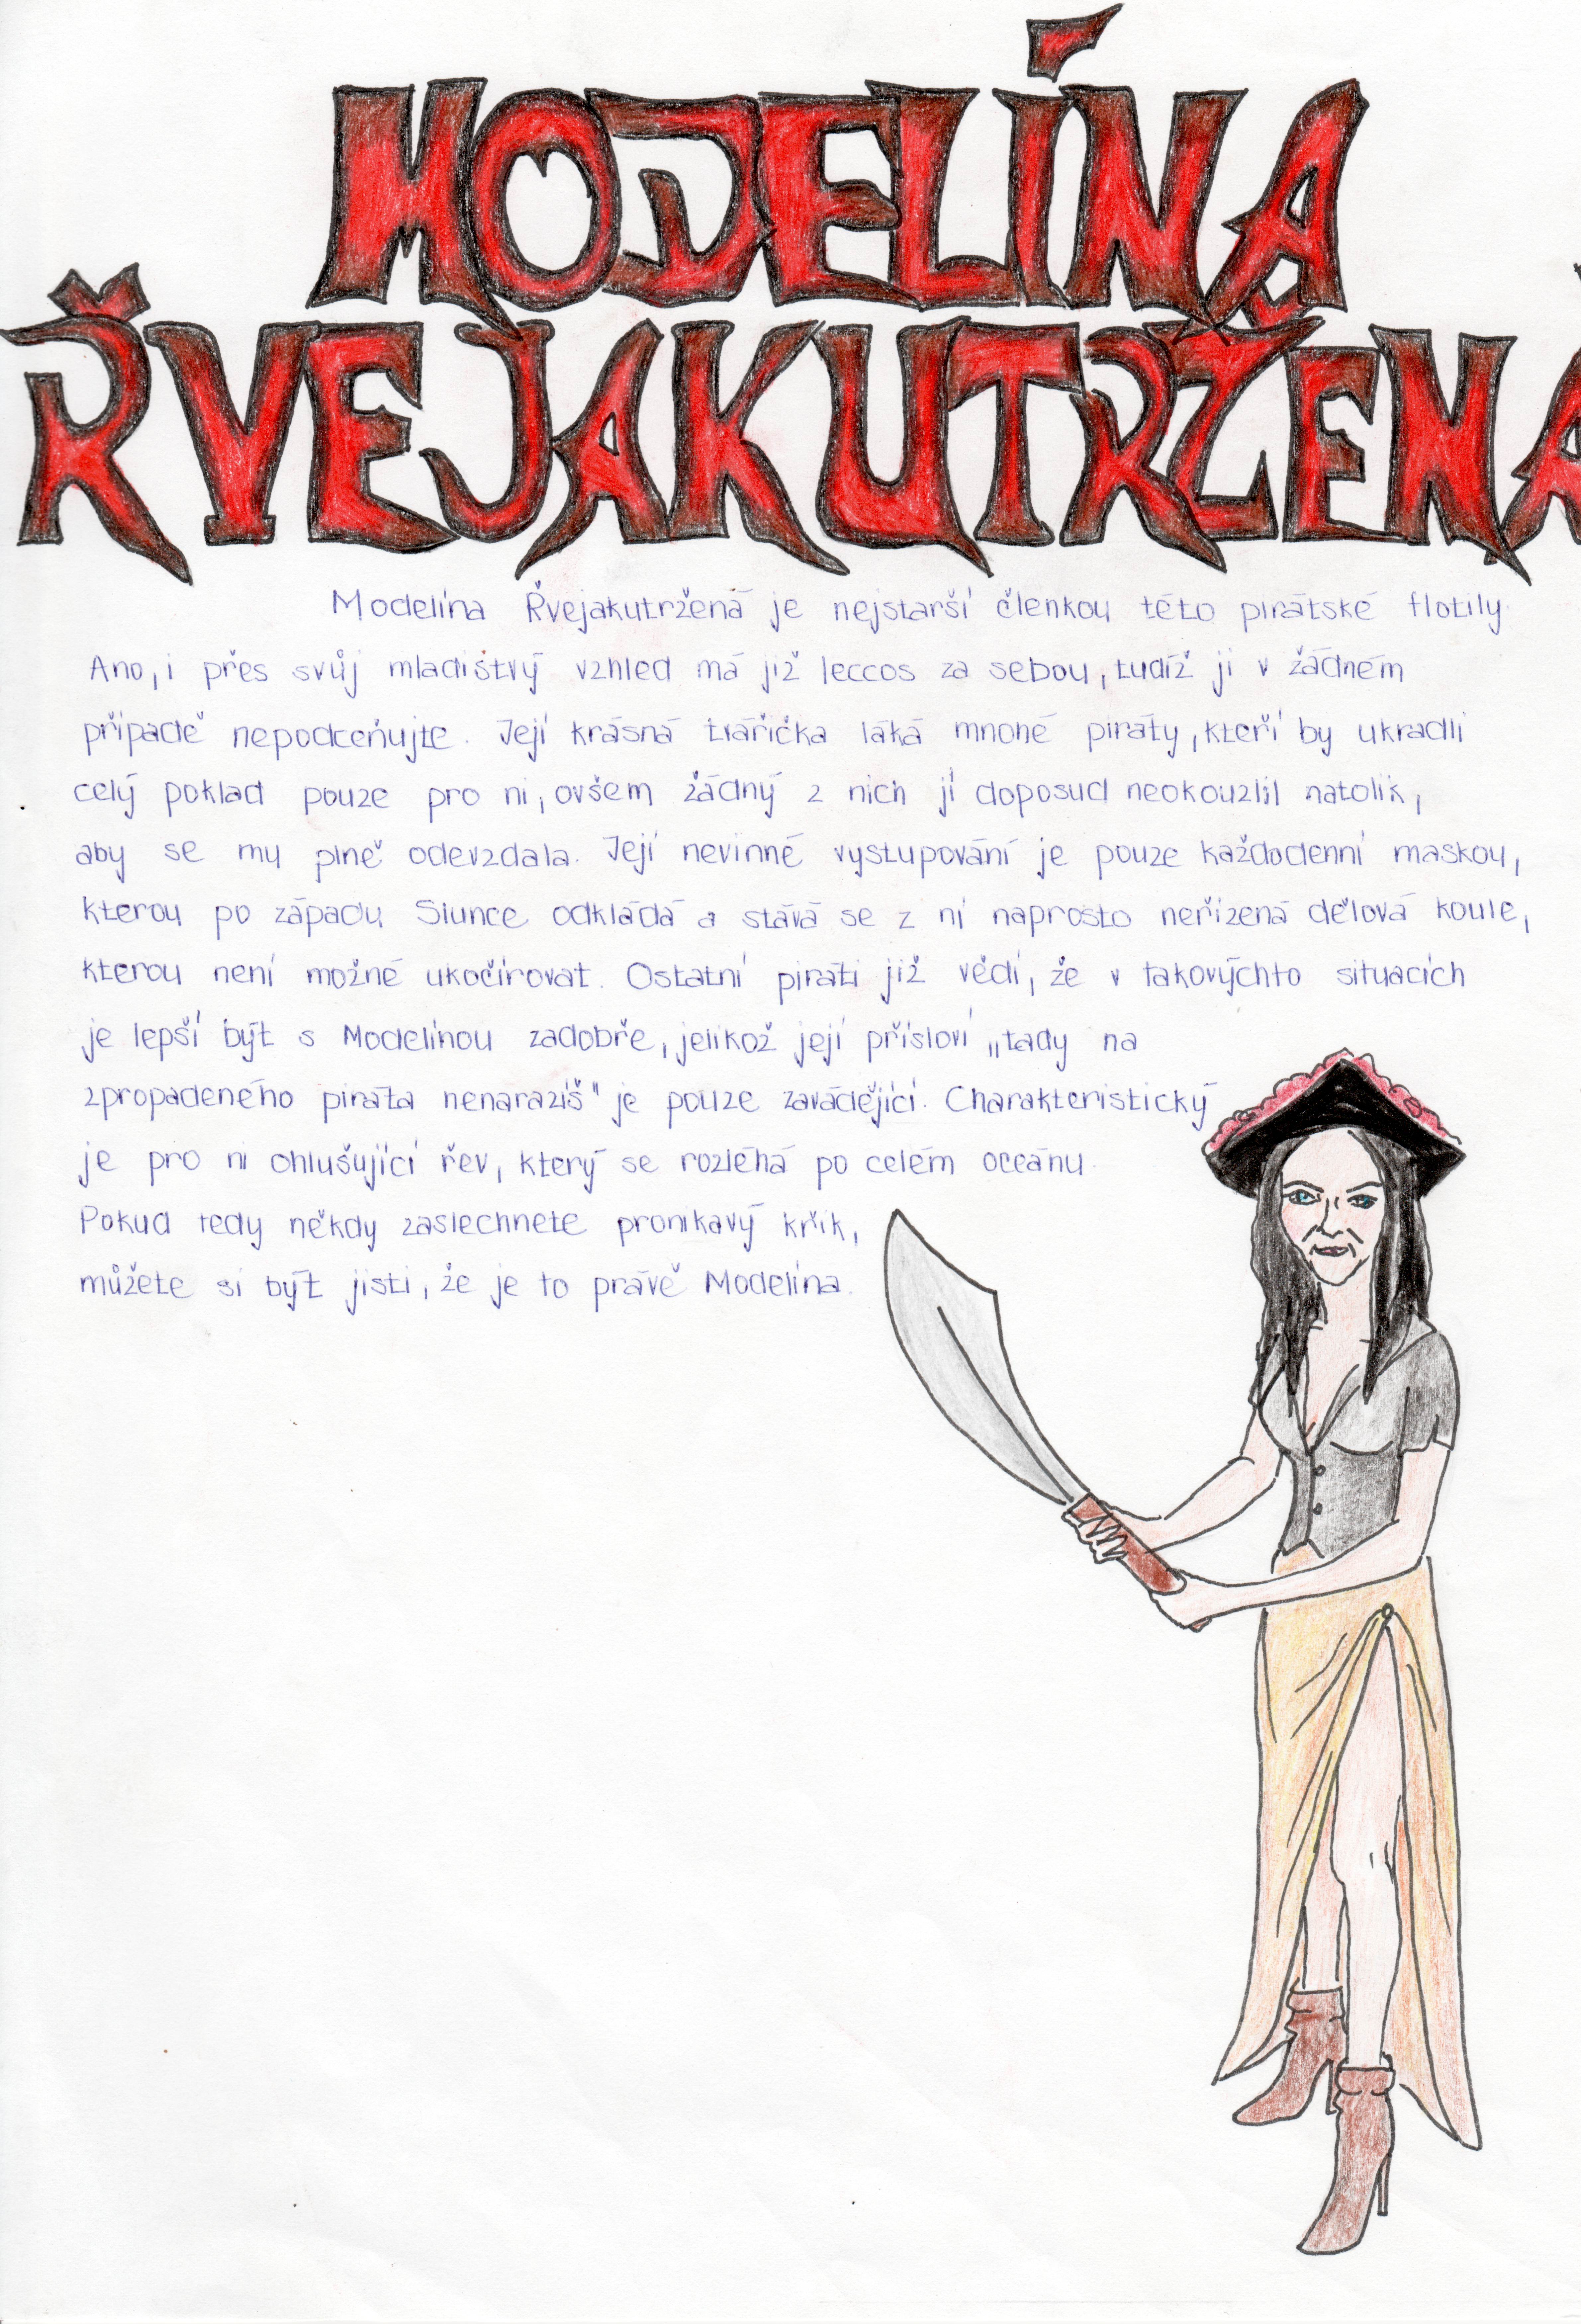 MODELÍNA
ŘVEJAKUTRŽENÁ
Modelína Řvejakutržená je nejstarší členkou této pirátské flotily.
Ano, i přes svůj mladistvý vzhled má již leccos za sebou, tudíž ji v žádném
případě nepodceňujte. Její krásná tvářička láká mnohé piráty, kteří by ukradli
celý poklad pouze pro ni, ovšem žádný z nich jí doposud neokouzlil natolik,
aby se mu plně odevzdala. Její nevinné vystupování je pouze každodenní maskou,
kterou po západu Slunce odkládá a stává se z ní naprosto neřízená dělová koule,
kterou není možné ukočírovat. Ostatní piráti již vědí, že v takovýchto situacích
je lepší být s Modelínou zadobře, jelikož její přísloví „tady na
zpropadeného piráta nenarazíš" je pouze zavádějící. Charakteristický
je pro ni ohlušující řev, který se rozléhá po celém oceánu.
Pokud tedy někdy zaslechnete pronikavý křik,
můžete si být jisti, že je to právě Modelína.